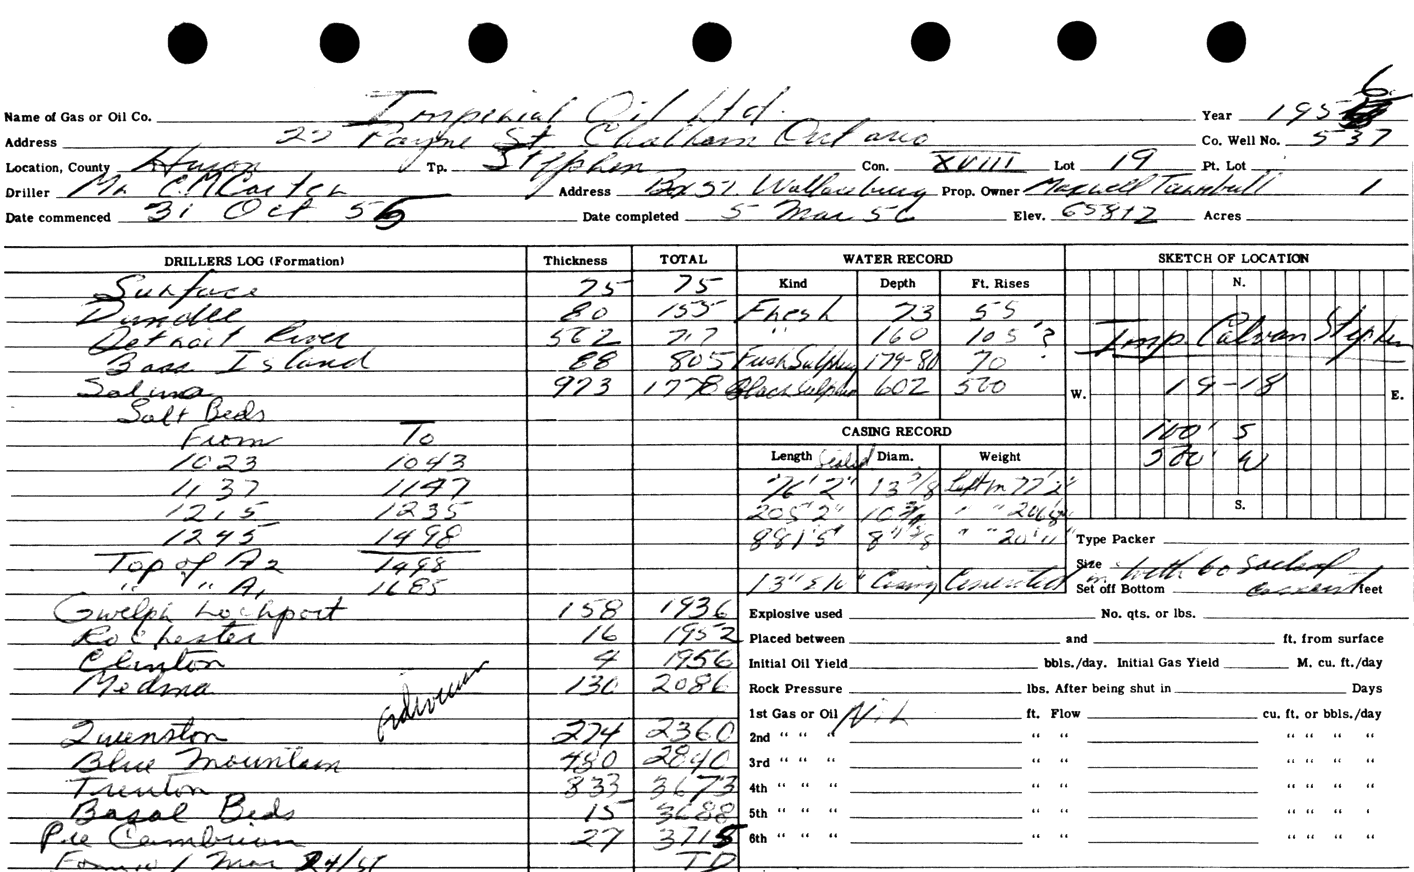 Name of Gas or Oil Co. Imperial Oil Ltd. Year 1956
Address 22 Payne St Chatham Ontario Co. Well No. 537
Location, County Huron Tp. Stephen Con. XVIII Lot 19 Pt. Lot
Driller Mr C McCarter Address Box 51 Wallaceburg Prop. Owner Maxwell Turnbull 1
Date commenced 31 Oct 55 Date completed 5 Mar 56 Elev. 658+2 Acres
DRILLERS LOG (Formation) Thickness TOTAL WATER RECORD SKETCH OF LOCATION
Surface 75 75 Kind Depth Ft. Rises N.
Dundee 80 155 Fresh 73 55
Detroit River 562 717 " 160 105 ? Imp. Calvan Stephen
Bass Island 88 805 Fresh Sulphur 179-80 70
Salina 973 1778 Black Sulphur 602 500 W. 19-18 E.
Salt Beds
From To CASING RECORD 100' S
1023 1043 Length Sealed Diam. Weight 500' W
1137 1147 76' 2" 13 3/8 Left in 77' 2"
1215 1235 205' 2" 10 3/4 " " S.
1245 1498 881' 5" " " Type Packer
Top of A2 1498 Size
" " A1 1685 13" & 10" Casing Cemented in with 60 Sacks of cement Set off Bottom feet
Guelph Lockport 158 1936 Explosive used No. qts. or lbs.
Rochester 16 1952 Placed between and ft. from surface
Clinton 4 1956 Initial Oil Yield bbls./day. Initial Gas Yield M. cu. ft./day
Medina 130 2086 Rock Pressure lbs. After being shut in Days
1st Gas or Oil Nil ft. Flow cu. ft. or bbls./day
Queenston 274 2360 2nd " " " " " " " " "
Blue Mountain 480 2840 3rd " " " " " " " " "
Trenton 833 3673 4th " " " " " " " " "
Basal Beds 15 3688 5th " " " " " " " " "
Pre Cambrian 27 3715 6th " " " " " " " " "
TD